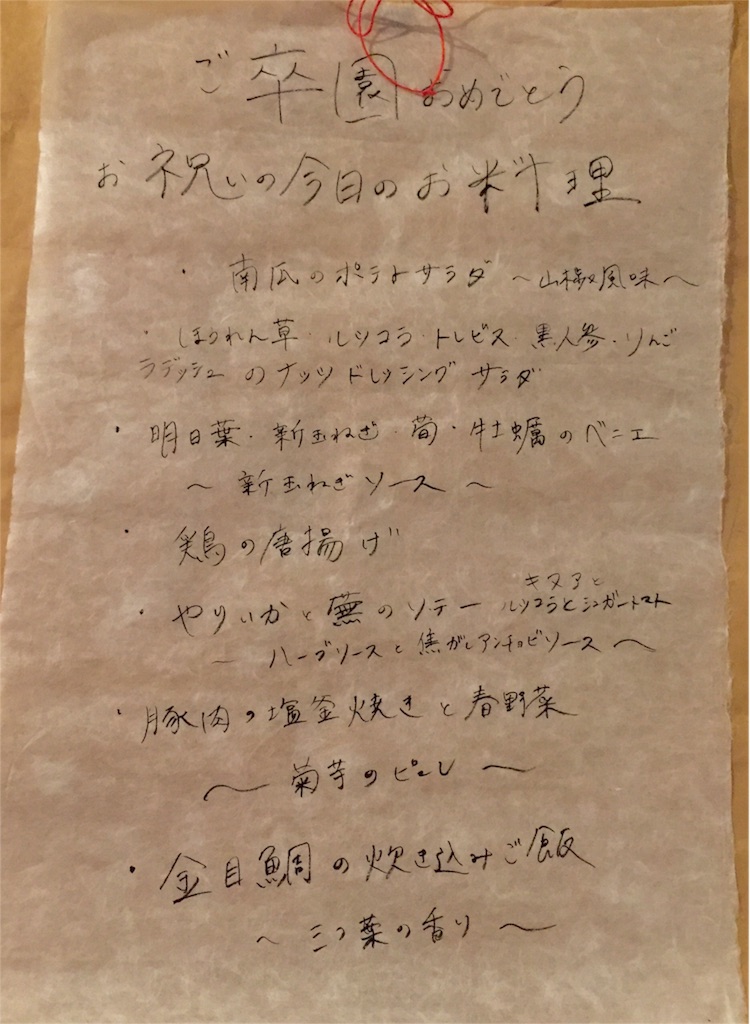 ご卒園おめでとう
お祝いの今日のお料理
・南瓜のポテトサラダ 〜山椒風味〜
・ほうれん草・ルッコラ・トレビス・黒人参・りんご
ラディッシュのナッツドレッシングサラダ
・明日葉・新玉ねぎ・筍・牡蠣のベニエ
〜新玉ねぎソース〜
・鶏の唐揚げ
・やりいかと蕪のソテー キヌアと
ルッコラとシュガートマト
〜ハーブソースと焦がしアンチョビソース〜
・豚肉の塩釜焼きと春野菜
〜菊芋のピュレ〜
・金目鯛の炊き込みご飯
〜三つ葉の香り〜